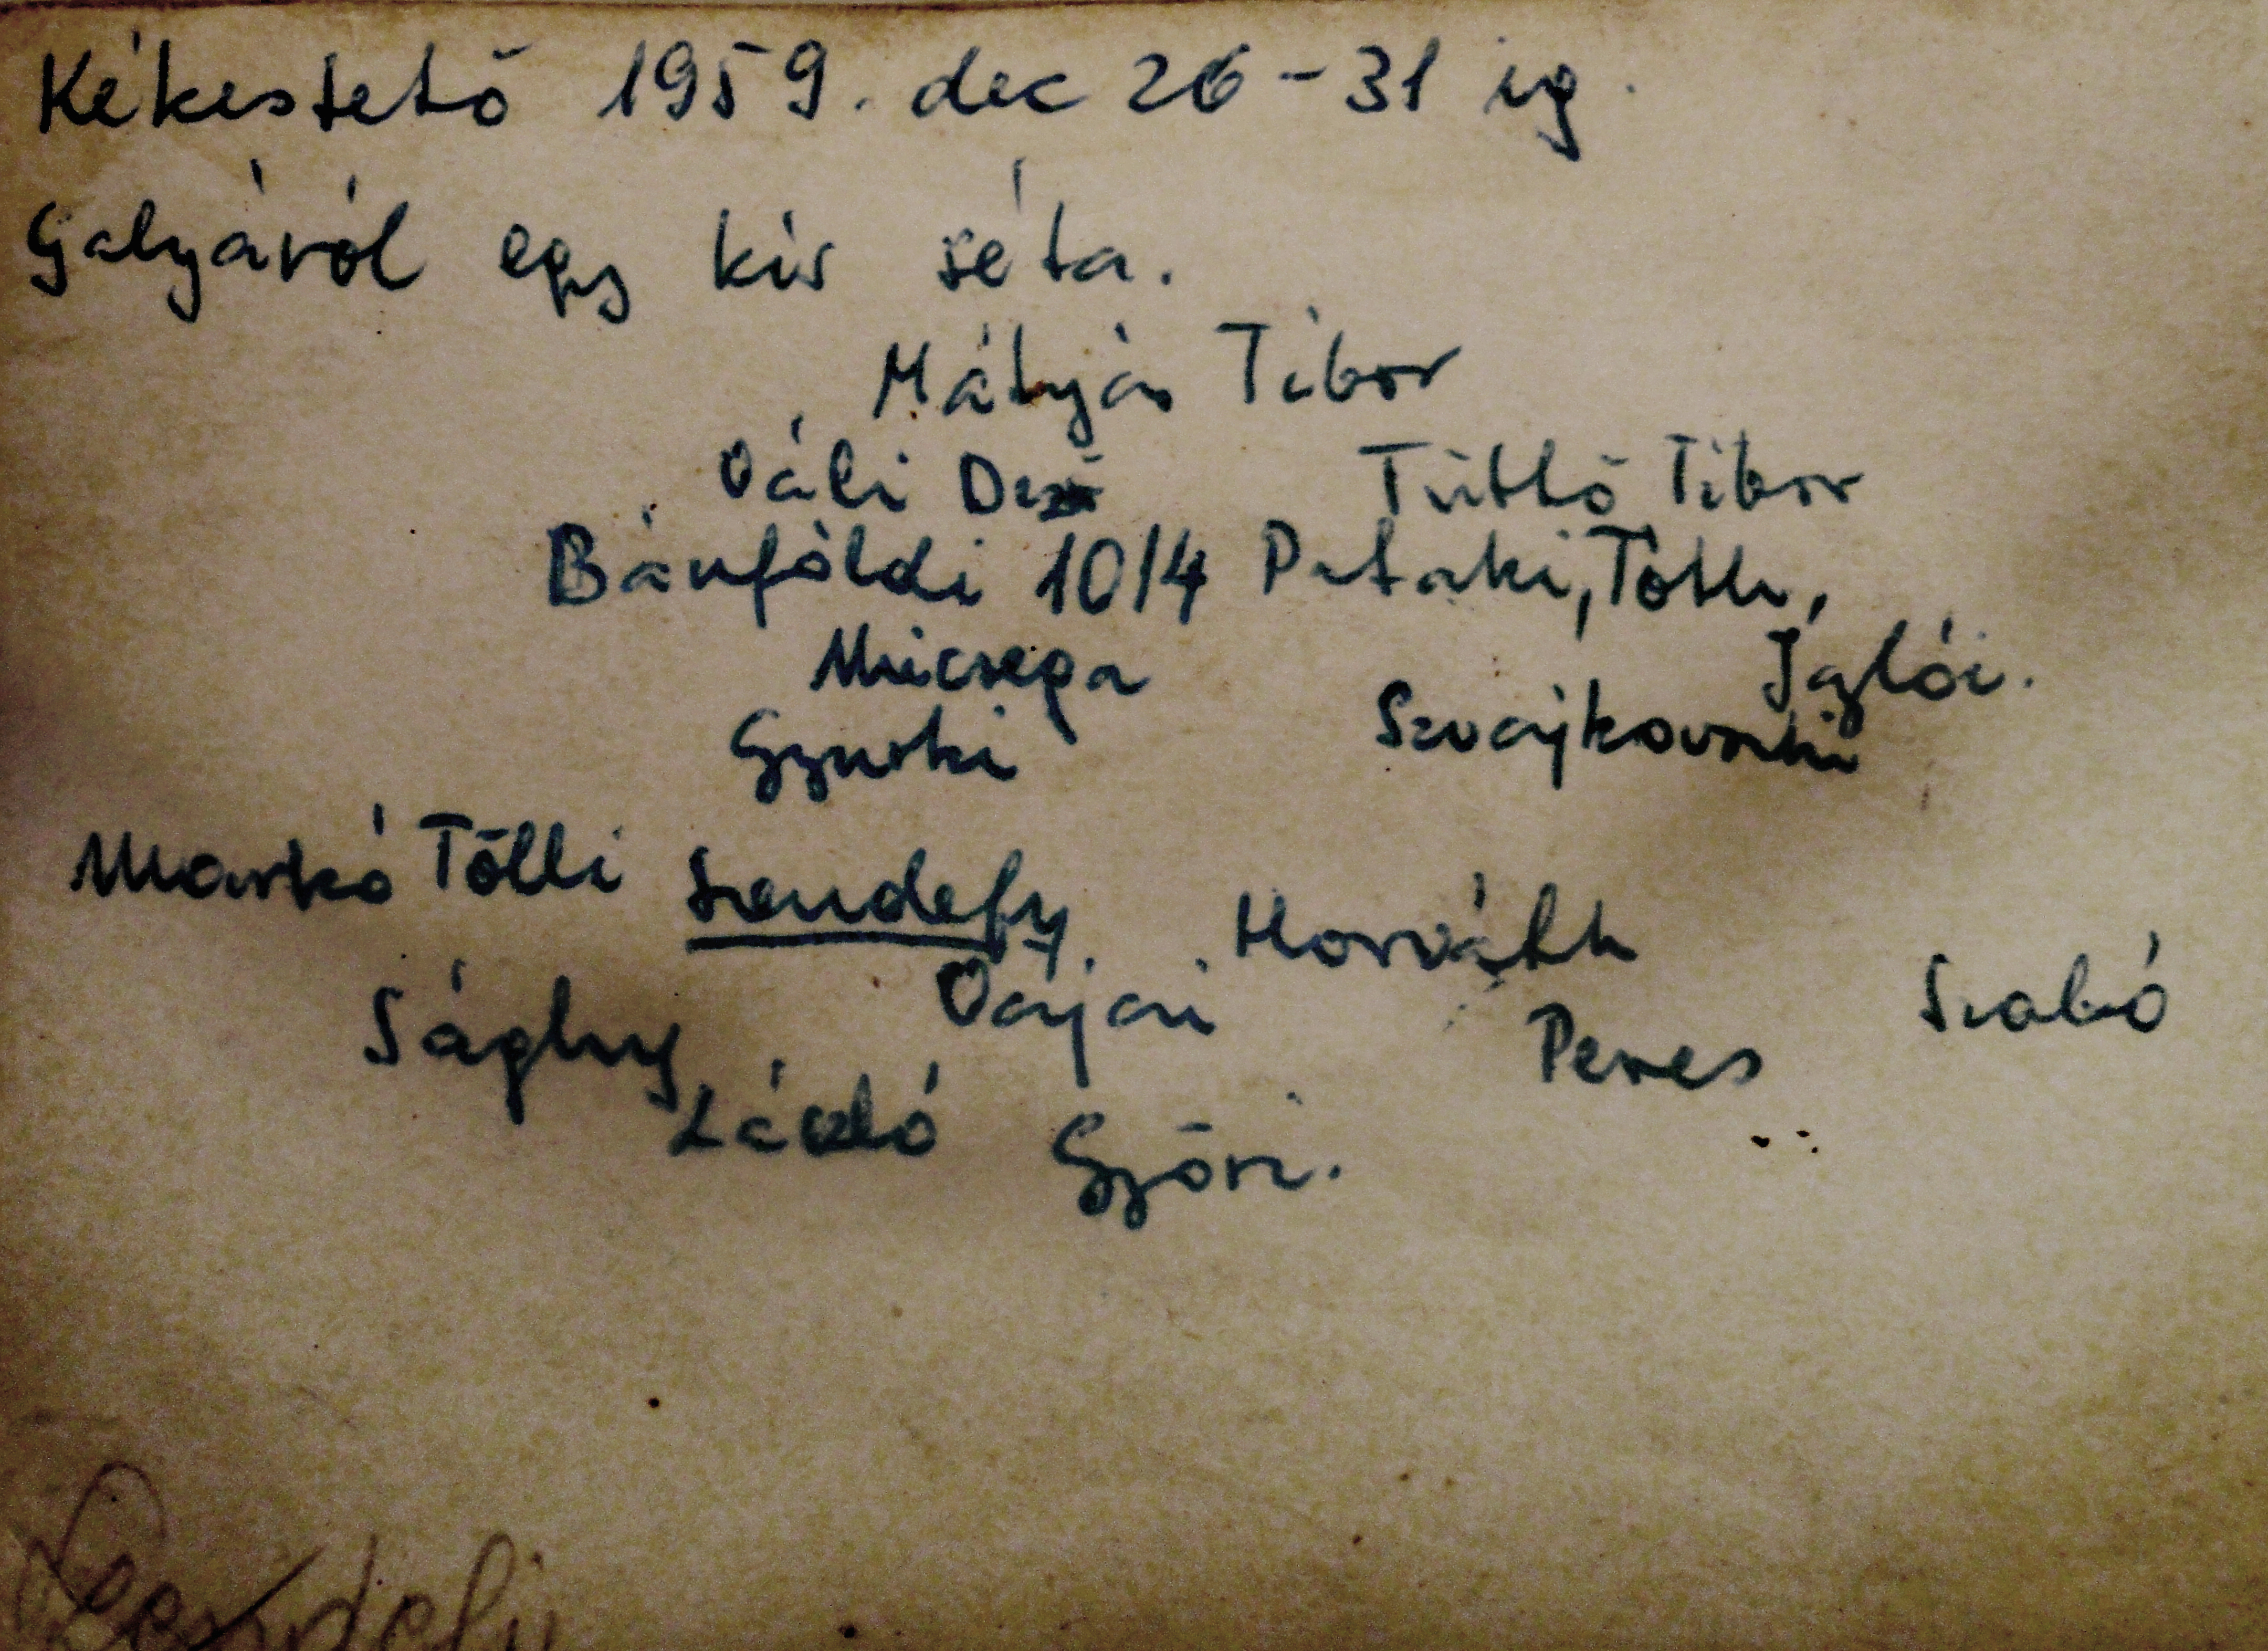 Kékestető 1959. dec 26-31 ig.
Galyáról egy kis séta.
Mátyás Tibor
Váli Dezső Tüttő Tibor
Bánföldi 10/4 Pataki, Tóth,
Micsega Iglói.
Gyurki Szvajkovszki
Markó Tölli Szendefy. Horváth
Sághy Vajai Peres Szabó
László Győri.